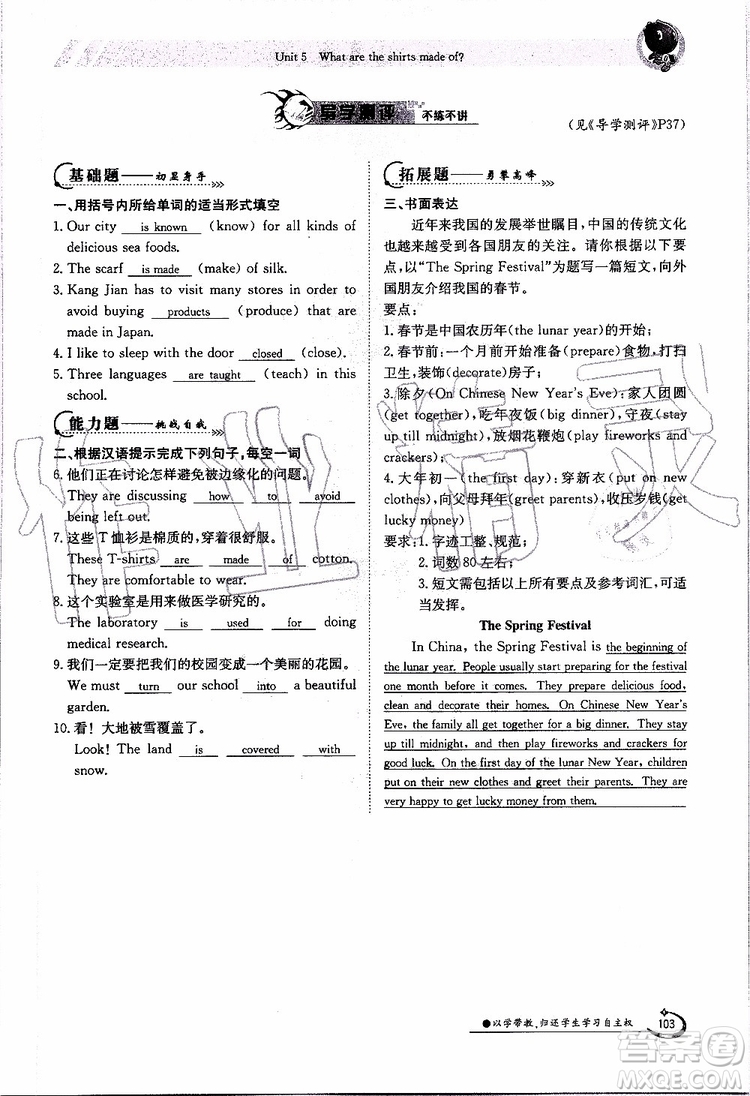 Unit 5 What are the shirts made of?
导学测评 不练不讲
(见《导学测评》P37)
基础题——初显身手
一、用括号内所给单词的适当形式填空
1. Our city is known (know) for all kinds of
delicious sea foods.
2. The scarf is made (make) of silk.
3. Kang Jian has to visit many stores in order to
avoid buying products (produce) that are
made in Japan.
4. I like to sleep with the door closed (close).
5. Three languages are taught (teach) in this
school.
能力题——挑战自我
二、根据汉语提示完成下列句子,每空一词
6. 他们正在讨论怎样避免被边缘化的问题。
They are discussing how to avoid
being left out.
7. 这些 T 恤衫是棉质的,穿着很舒服。
These T-shirts are made of cotton.
They are comfortable to wear.
8. 这个实验室是用来做医学研究的。
The laboratory is used for doing
medical research.
9. 我们一定要把我们的校园变成一个美丽的花园。
We must turn our school into a beautiful
garden.
10. 看!大地被雪覆盖了。
Look! The land is covered with
snow.
拓展题——勇攀高峰
三、书面表达
近年来我国的发展举世瞩目,中国的传统文化
也越来越受到各国朋友的关注。请你根据以下要
点,以“The Spring Festival”为题写一篇短文,向外
国朋友介绍我国的春节。
要点:
1. 春节是中国农历年(the lunar year)的开始;
2. 春节前:一个月前开始准备(prepare)食物,打扫
卫生,装饰(decorate)房子;
3. 除夕(On Chinese New Year's Eve):家人团圆
(get together),吃年夜饭(big dinner),守夜(stay
up till midnight),放烟花鞭炮(play fireworks and
crackers);
4. 大年初一(the first day):穿新衣(put on new
clothes),向父母拜年(greet parents),收压岁钱(get
lucky money)
要求:1. 字迹工整、规范;
2. 词数 80 左右;
3. 短文需包括以上所有要点及参考词汇,可适
当发挥。
The Spring Festival
In China, the Spring Festival is the beginning of
the lunar year. People usually start preparing for the festival
one month before it comes. They prepare delicious food,
clean and decorate their homes. On Chinese New Year's
Eve, the family all get together for a big dinner. They stay
up till midnight, and then play fireworks and crackers for
good luck. On the first day of the lunar New Year, children
put on their new clothes and greet their parents. They are
very happy to get lucky money from them.
●以学带教,归还学生学习自主权
103
作业精灵
答案圈
MXQE.COM